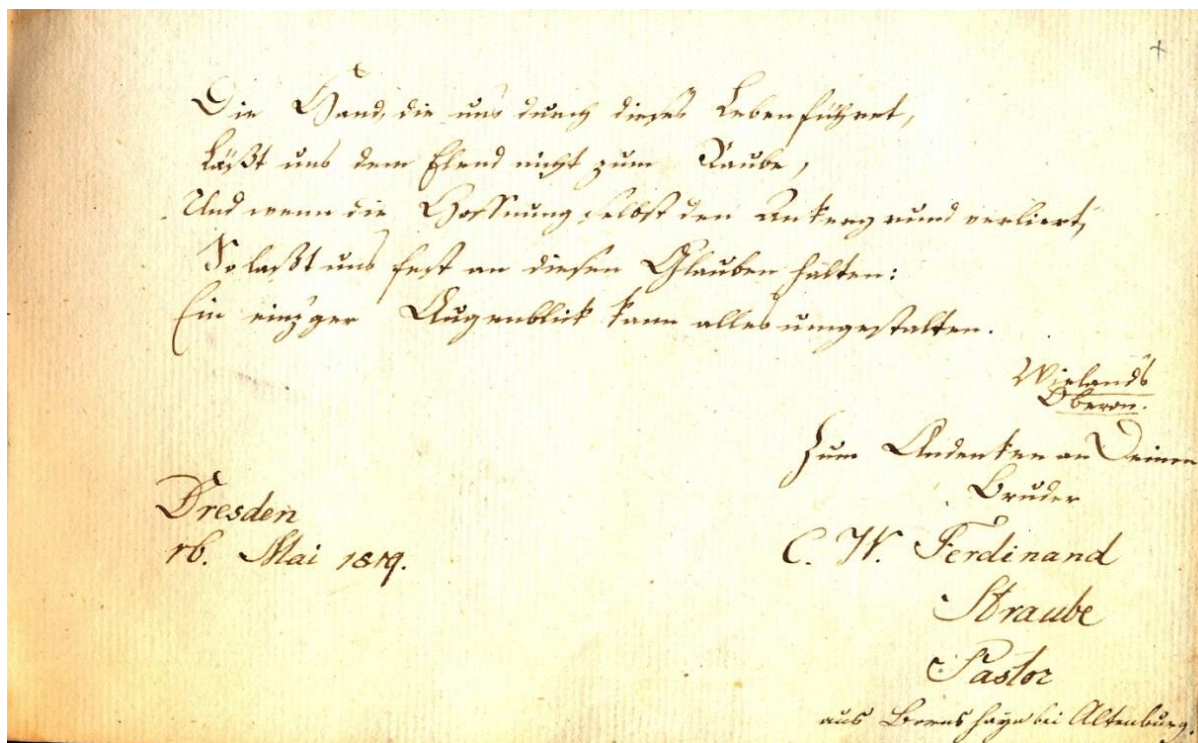 Die Hand, die uns durch dieses Leben führet,
Läßt uns dem Elend nicht zum Raube,
Und wenn die Hoffnung selbst den Ankergrund verliert,
So laßt uns fest an diesen Glauben halten:
Ein einz'ger Augenblick kann alles umgestalten.
Wielands
Oberon.
Zum Andenken an Deinen
Bruder
Dresden
Mai
C. W. Ferdinand
Straube
Pastor
aus Bornshayn bei Altenburg.